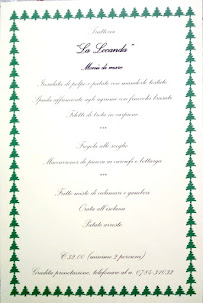 Trattoria
"La Locanda"
Menù di mare
Insalata di polpo e patate con
Spada affumicato agli agrumi con finocchi brasati
Filetti di in carpione
***
Fregola allo scoglio
Maccarrones de punzu ai carciofi e bottarga
***
Fritto misto di calamari e gamberi
Orata all'isolana
Patate arrosto
€ 32.00 (minimo 2 persone)
Gradita prenotazione, telefonare al n. 0784-31032